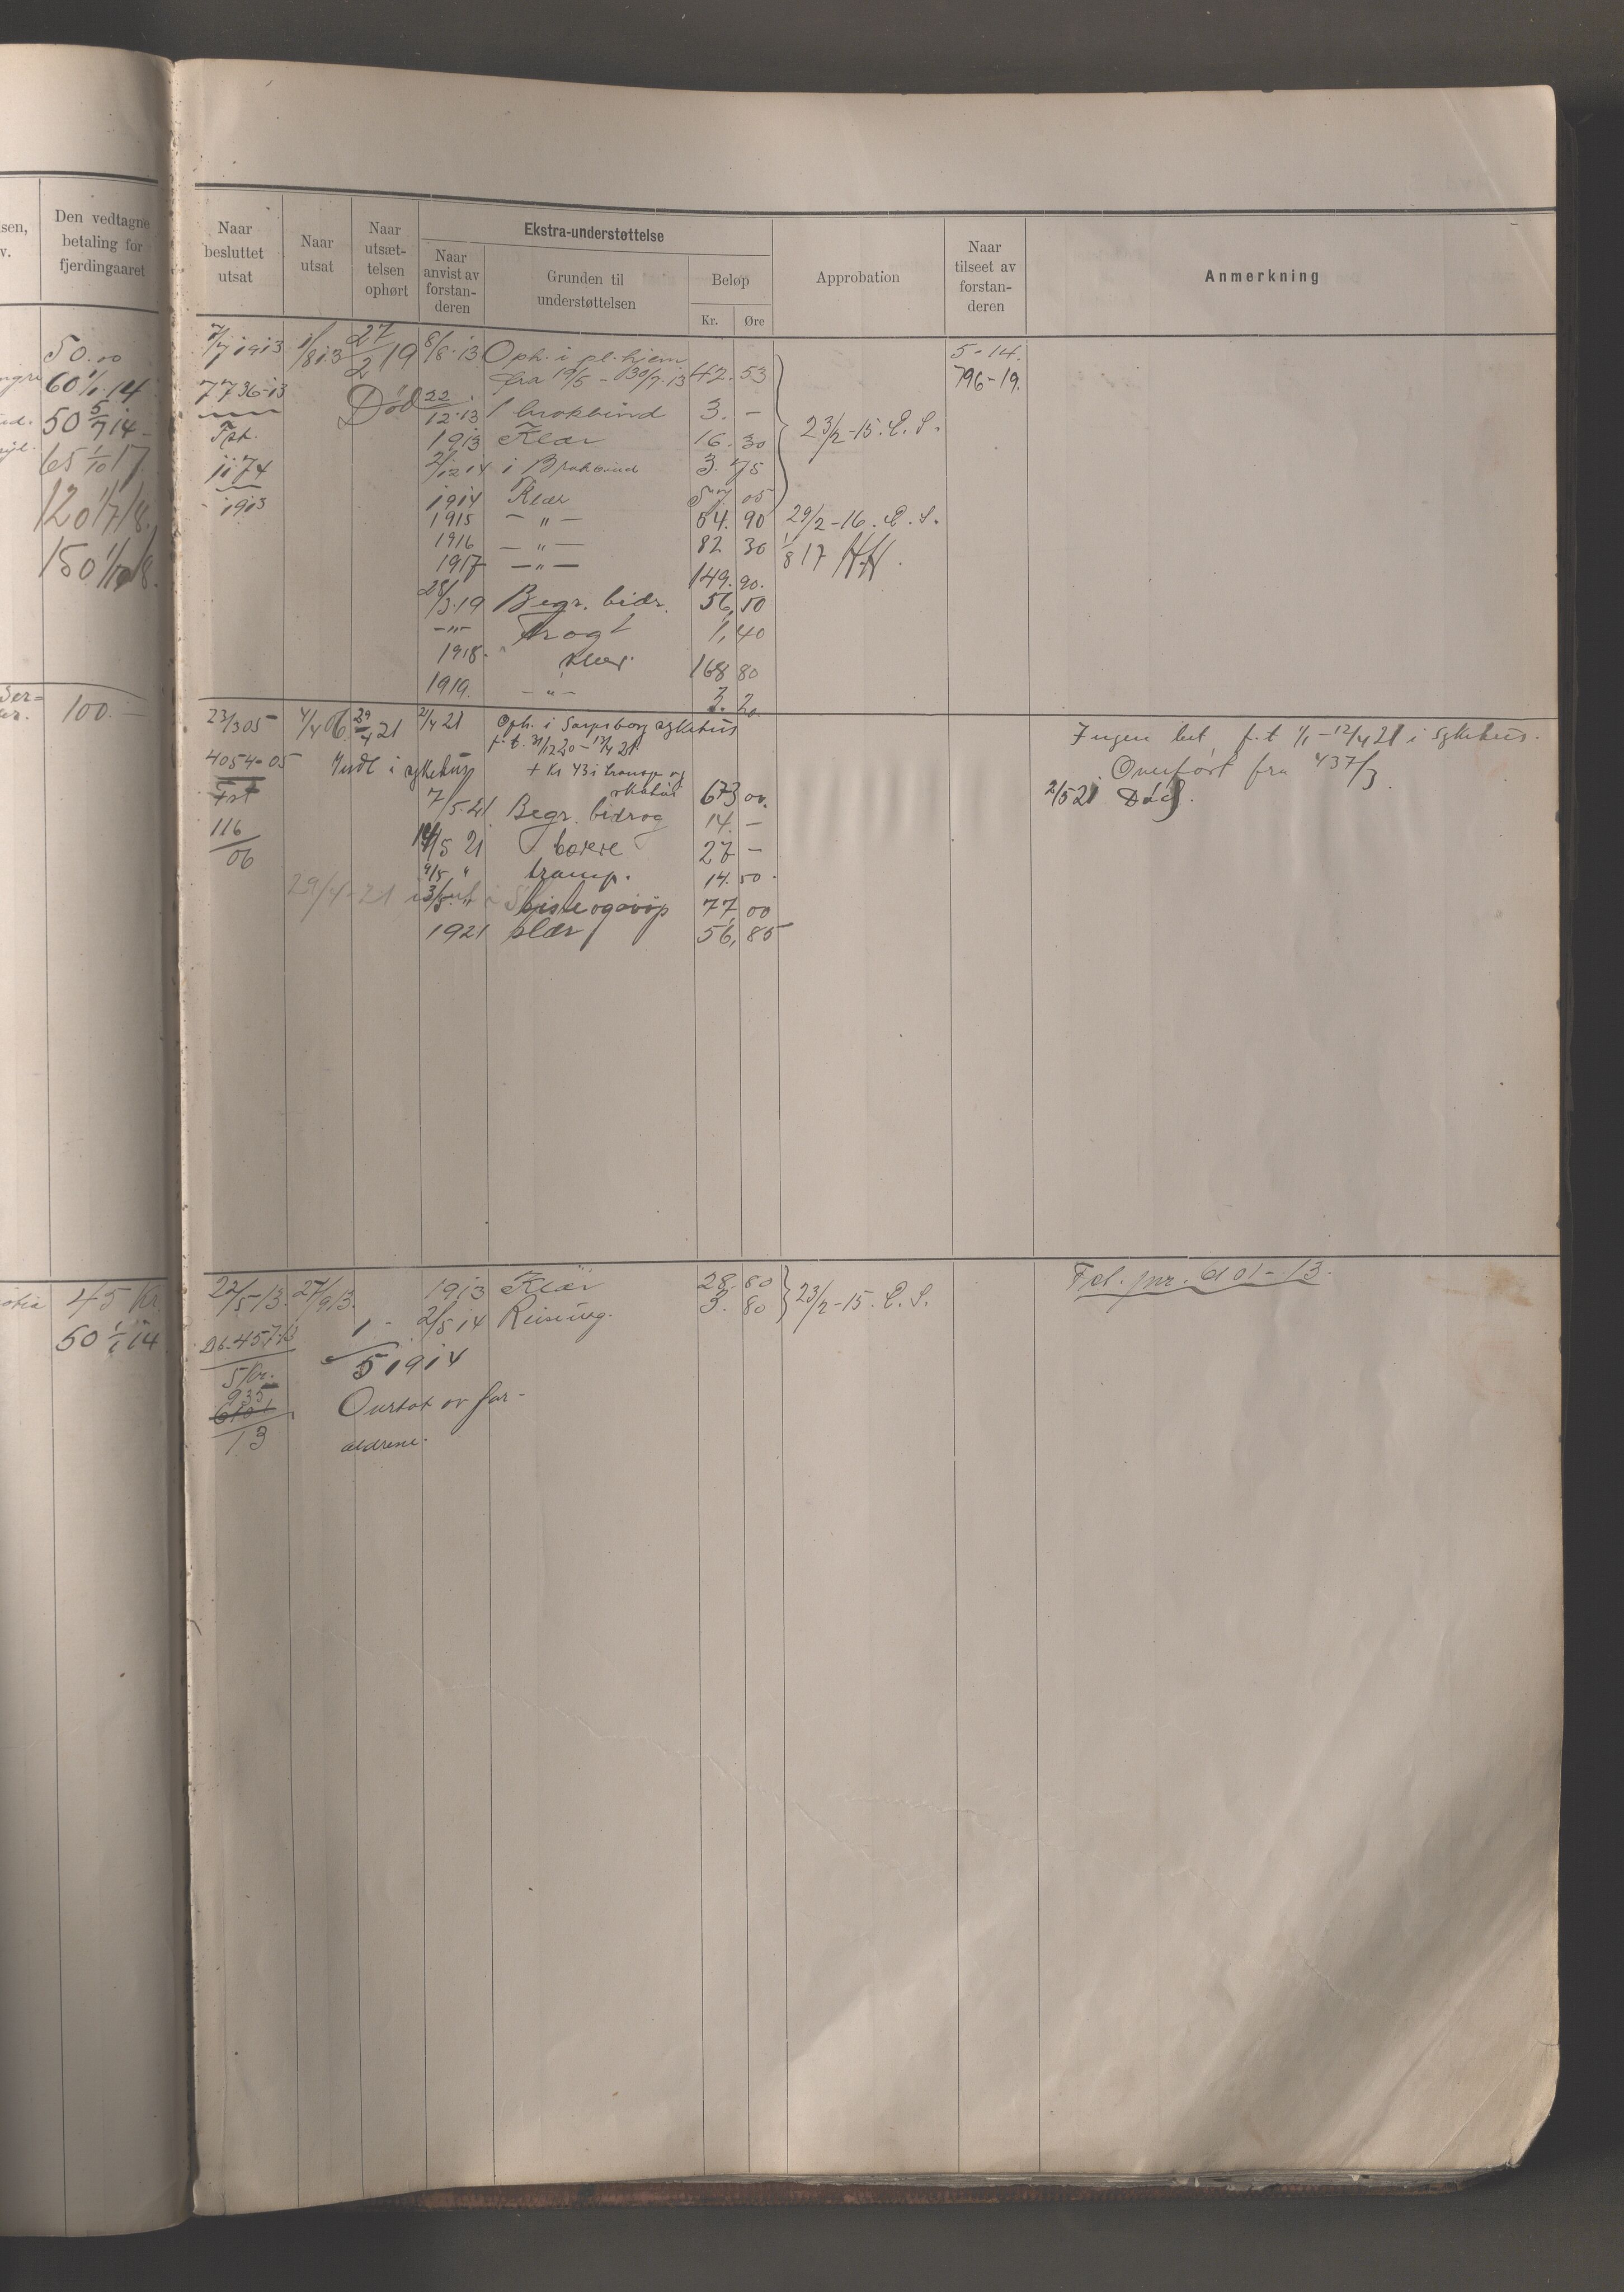 sen,
v.
Den vedtagne
betaling for
fjerdingaaret
50.00
60 1/1.14
50 5/7 14
65 1/10 17
120 1/7 18.
150 1/10 18.
100.—
45 Kr.
50 1/1 14
Naar
besluttet
utsat
Naar
utsat
Naar
utsæt-
telsen
ophørt
Ekstra-understøttelse
Naar
anvist av
forstan-
deren
Grunden til
understøttelsen
Beløp
Kr.
Øre
Approbation
Naar
tilseet av
forstan-
deren
Anmerkning
7/7 1913 1/8 13 27/2 19 8/8.13 Oph. i pl. hjem
fra 19/5 - 30/7.13 42.53
5-14.
796-19.
7736-13
Død 22/12.13 1 brokbind 3. —
Fst. 1913 Klær 16.30
23/2-15. E. S.
1174 2/12 14 1 Brokbind 3.75
1913 1914 Klær 05
1915 — " — 54.90 29/2-16. E. S.
1916 — " — 82 30 1/8 17
1917 — " — 149.90.
28/3.19 Begr. bidr. 56,50
— " — 1,40
1918. Klær. 168 80
1919. — " — 3.20
23/3 05 4/4 06 29/4 21 2/4 21 Oph. i Sarpsborg sykehus
f. t. 31/12 20 - 12/4 21
Ingen bet. f. t 1/1 - 12/4 21 i sykehus.
4054-05 Indl i sykehus + Kr 43 i transp og
sykehus 673 00.
Overført fra 437/3
Fst
7/5.21 Begr. bidrag 14. —
2/5 21 Død.
116/06
14/5 21 bærere 27 —
9/5 " transp. 14.50.
29/4-21
3/5 " kiste og svøp 77,00
1921 klær 56,85
22/5-13. 27/9 13. 1913 Klær 28.80
2/5 14 Reising. 3.80
23/2-15. E. S.
Fol. pr. 601-13.
Db. 457-13
1/5 1914
935
13
Overtat av for-
ældrene.